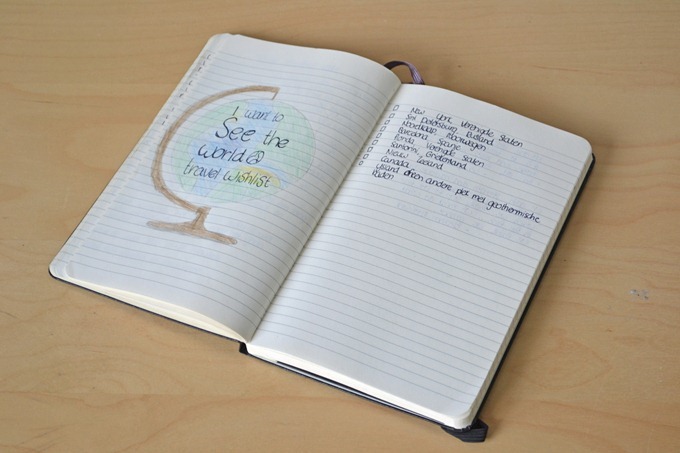 I want to
See the
world @
travel wishlist
New York, Verenigde Staten
Sint Petersburg, Rusland
Noorwegen
Barcelona, Spanje
Florida, Verenigde Staten
Santorini, Griekenland
Nieuw Zeeland
Canada
IJsland of een andere plek met geothermische
baden